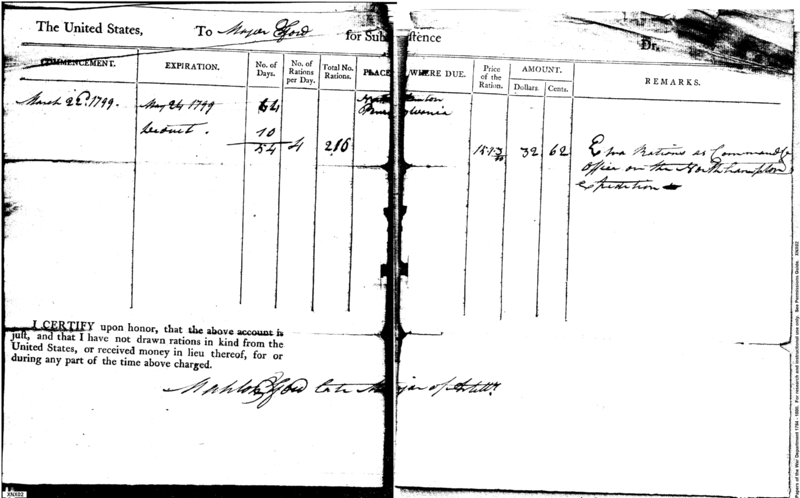 The United States, To Major Ford for Subsistence Dr.
COMMENCEMENT. EXPIRATION. No. of Days. No. of Rations per Day. Total No. Rations. PLACE WHERE DUE. Price of the Ration. AMOUNT. Dollars. Cents. REMARKS.
March 22d. 1799. May 24 1799 64
Pennsylvania
deduct. 10
54 4 216 32 62 Extra Rations as Commandg
Officer on the Northhampton
expedition
I CERTIFY upon honor, that the above account is
just, and that I have not drawn rations in kind from the
United States, or received money in lieu thereof, for or
during any part of the time above charged.
Mahlon Ford late Major of Artillr.
XNX02
Papers of the War Department 1784 - 1800. For research and instructional use only. See Permissions Guide. XNX02